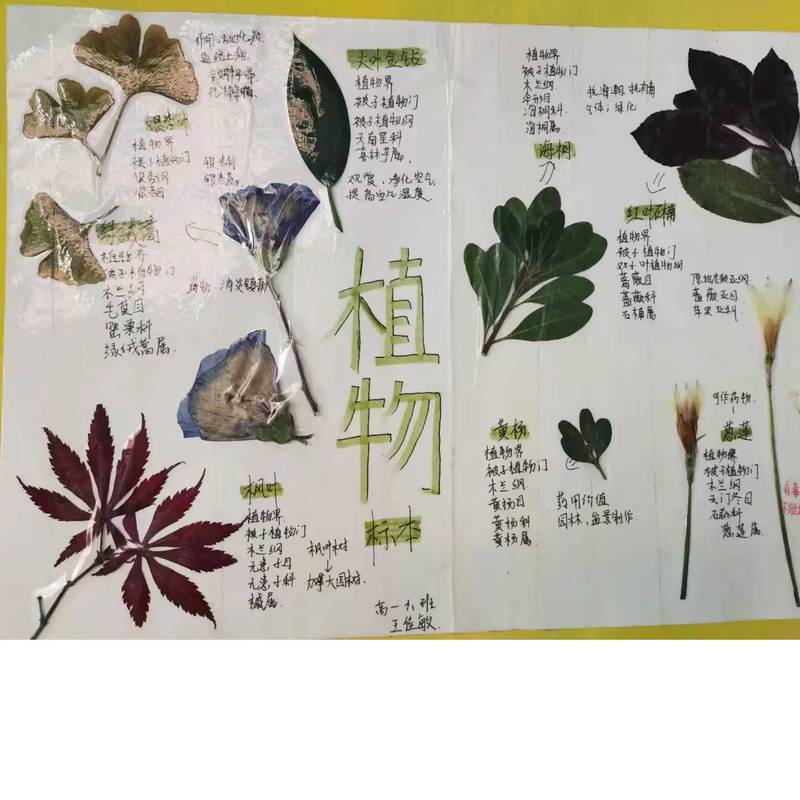 作用:活血化瘀
银杏叶
植物界
被子植物门
银杏纲
银杏目
银杏科
银杏属
植物界
被子植物门
木兰纲
毛茛目
罂粟科
绿绒蒿属
药物:消炎镇痛
大叶金钻
植物界
被子植物门
被子植物纲
天南星科
喜林芋属
观赏,净化空气,
提高空气湿度
植物
标本
高一
王佳敏
枫叶
植物界
被子植物门
木兰纲
无患子目
无患子科
槭属
枫叶树
加拿大国树
植物界
被子植物门
木兰纲
伞形目
海桐科
海桐属
海桐
抗海潮 抗有毒
气体;绿化
红叶石楠
植物界
被子植物门
双子叶植物纲
蔷薇目
蔷薇科
石楠属
原始花被亚纲
蔷薇亚目
苹果亚科
黄杨
植物界
被子植物门
木兰纲
黄杨目
黄杨科
黄杨属
药用价值
园林,盆景制作
可作药物
葱莲
植物界
被子植物门
木兰纲
天门冬目
石蒜科
葱莲属
有毒